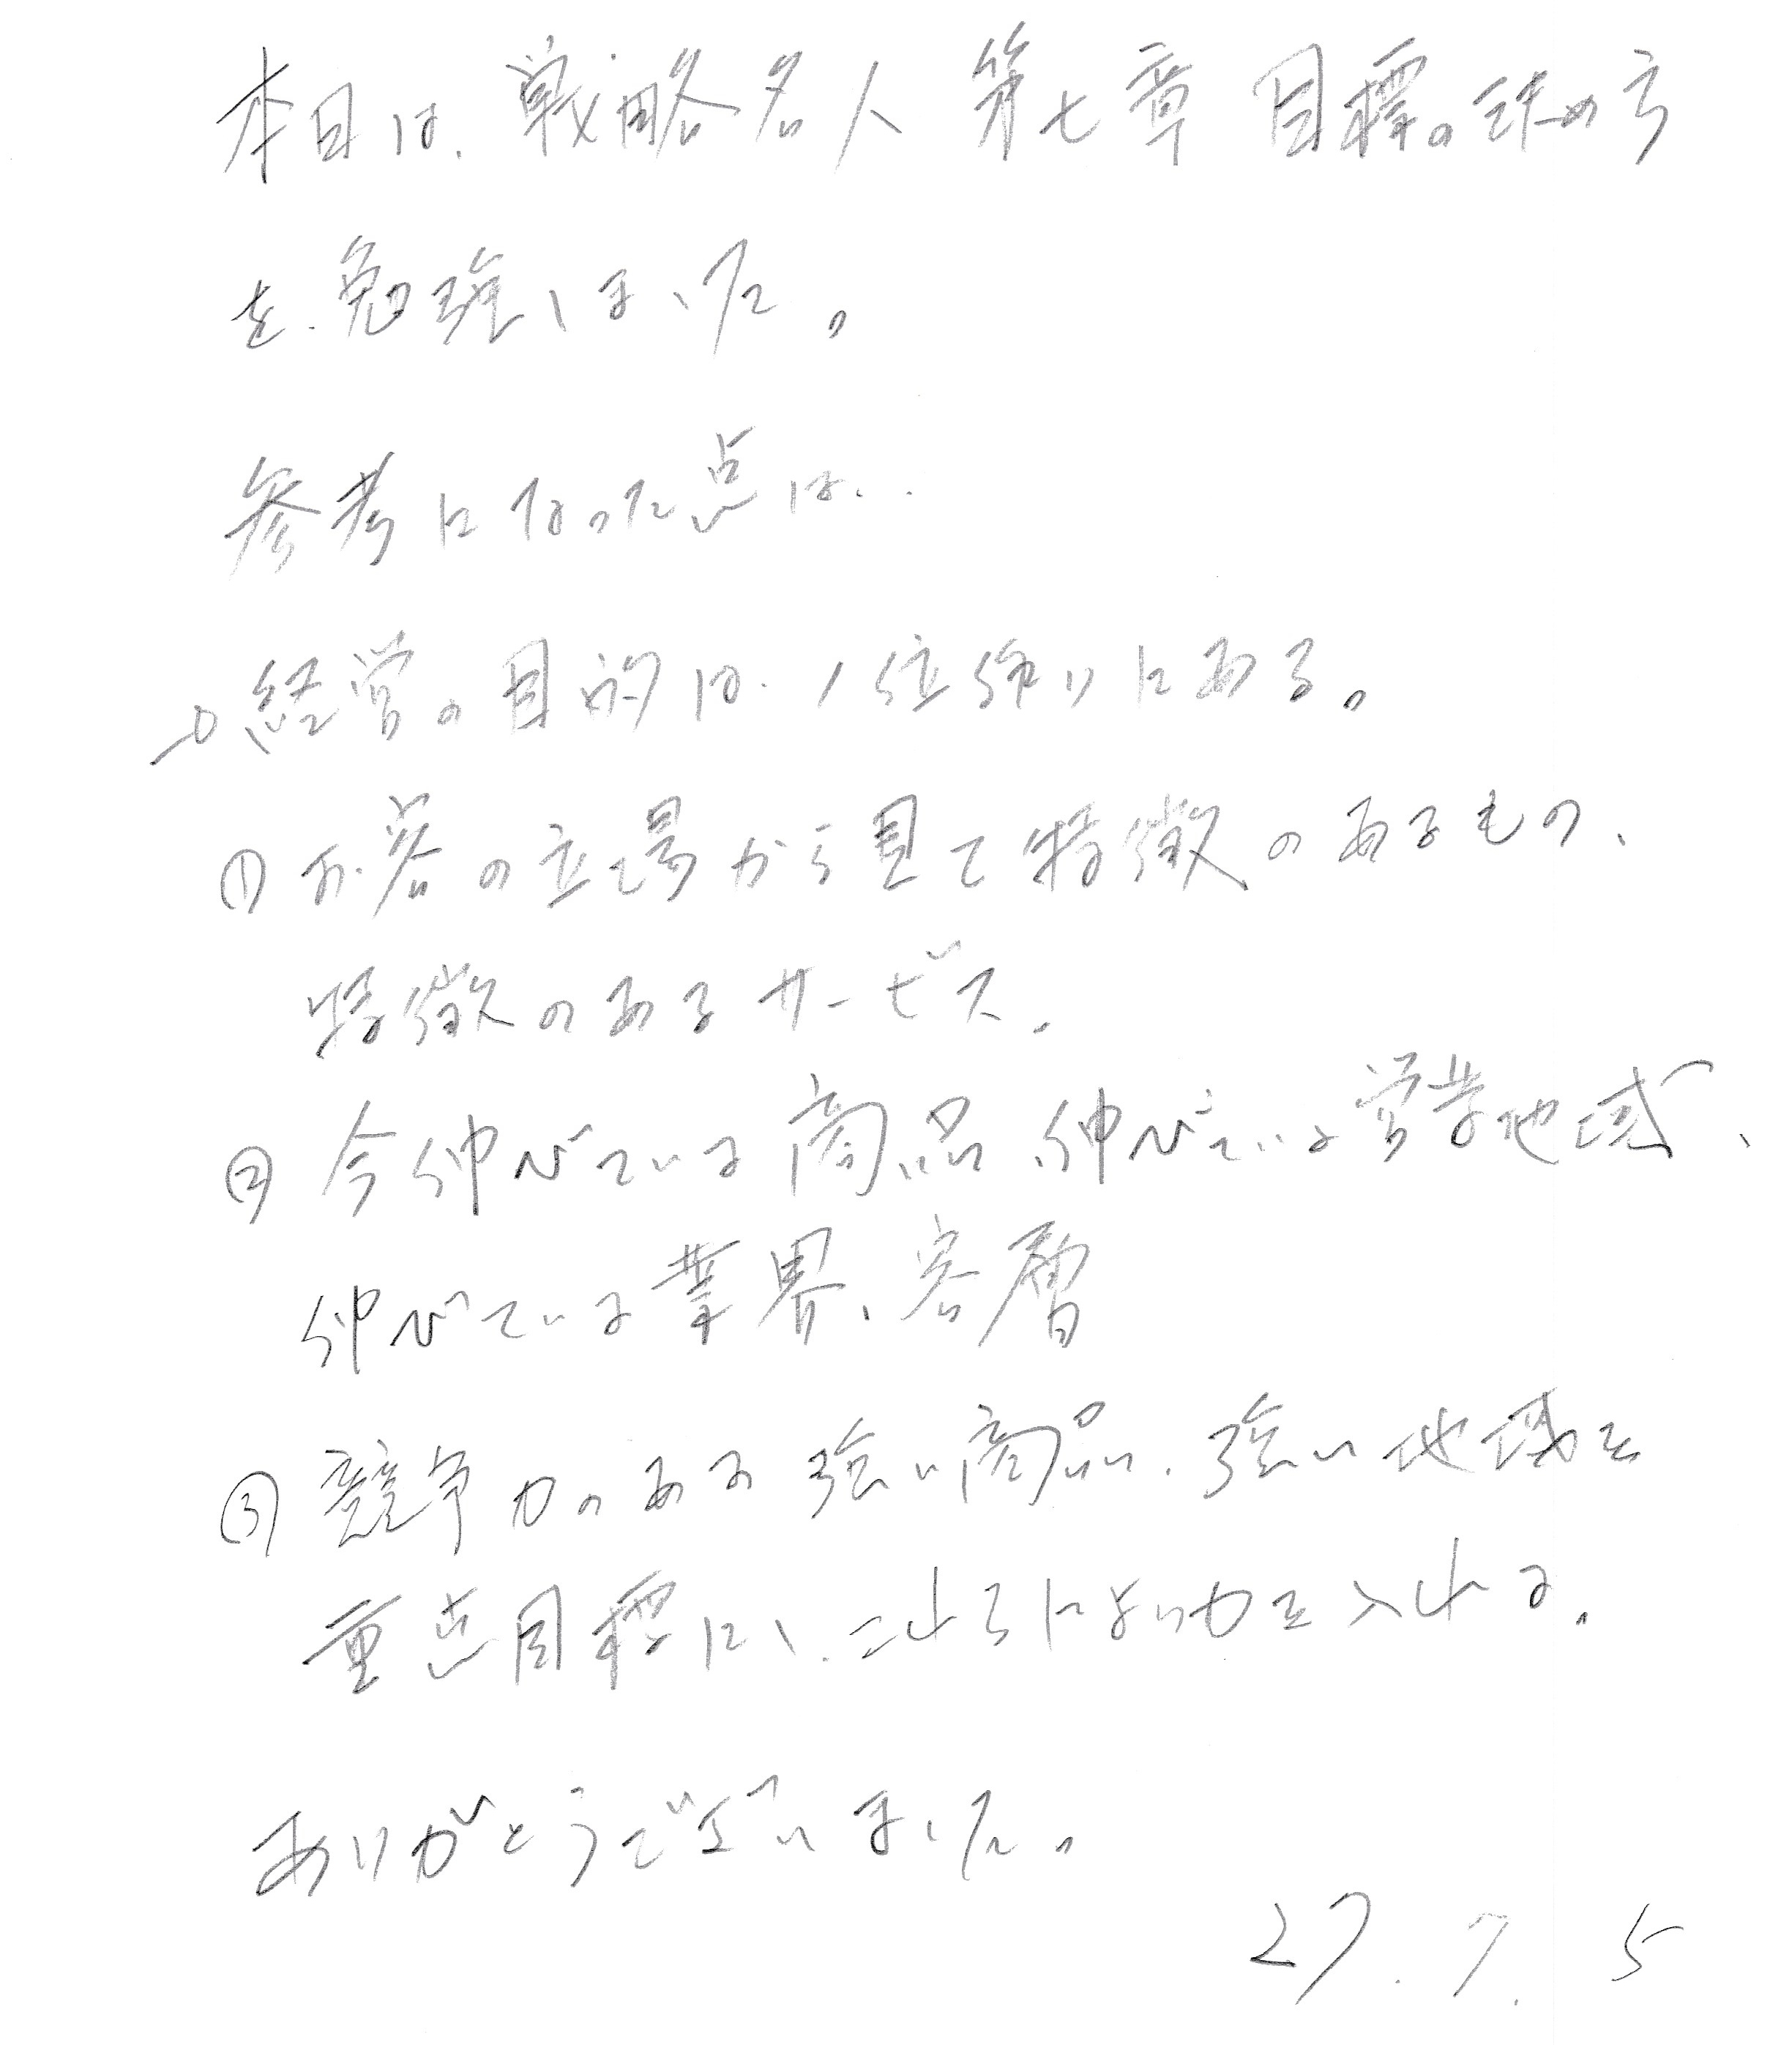 本日は、戦略名人 第七章 目標の決め方
を、勉強しました。
参考になった点は、
→経営の目的は、1位作りにある。
① お客の立場から見て特徴のあるもの、
特徴のあるサービス、
② 今伸びている商品、伸びている営業地域、
伸びている業界、客層
③ 競争力のある強い商品、強い地域を
重点目標にし、これらにより力を入れる。
ありがとうございました。
27. 7. 5